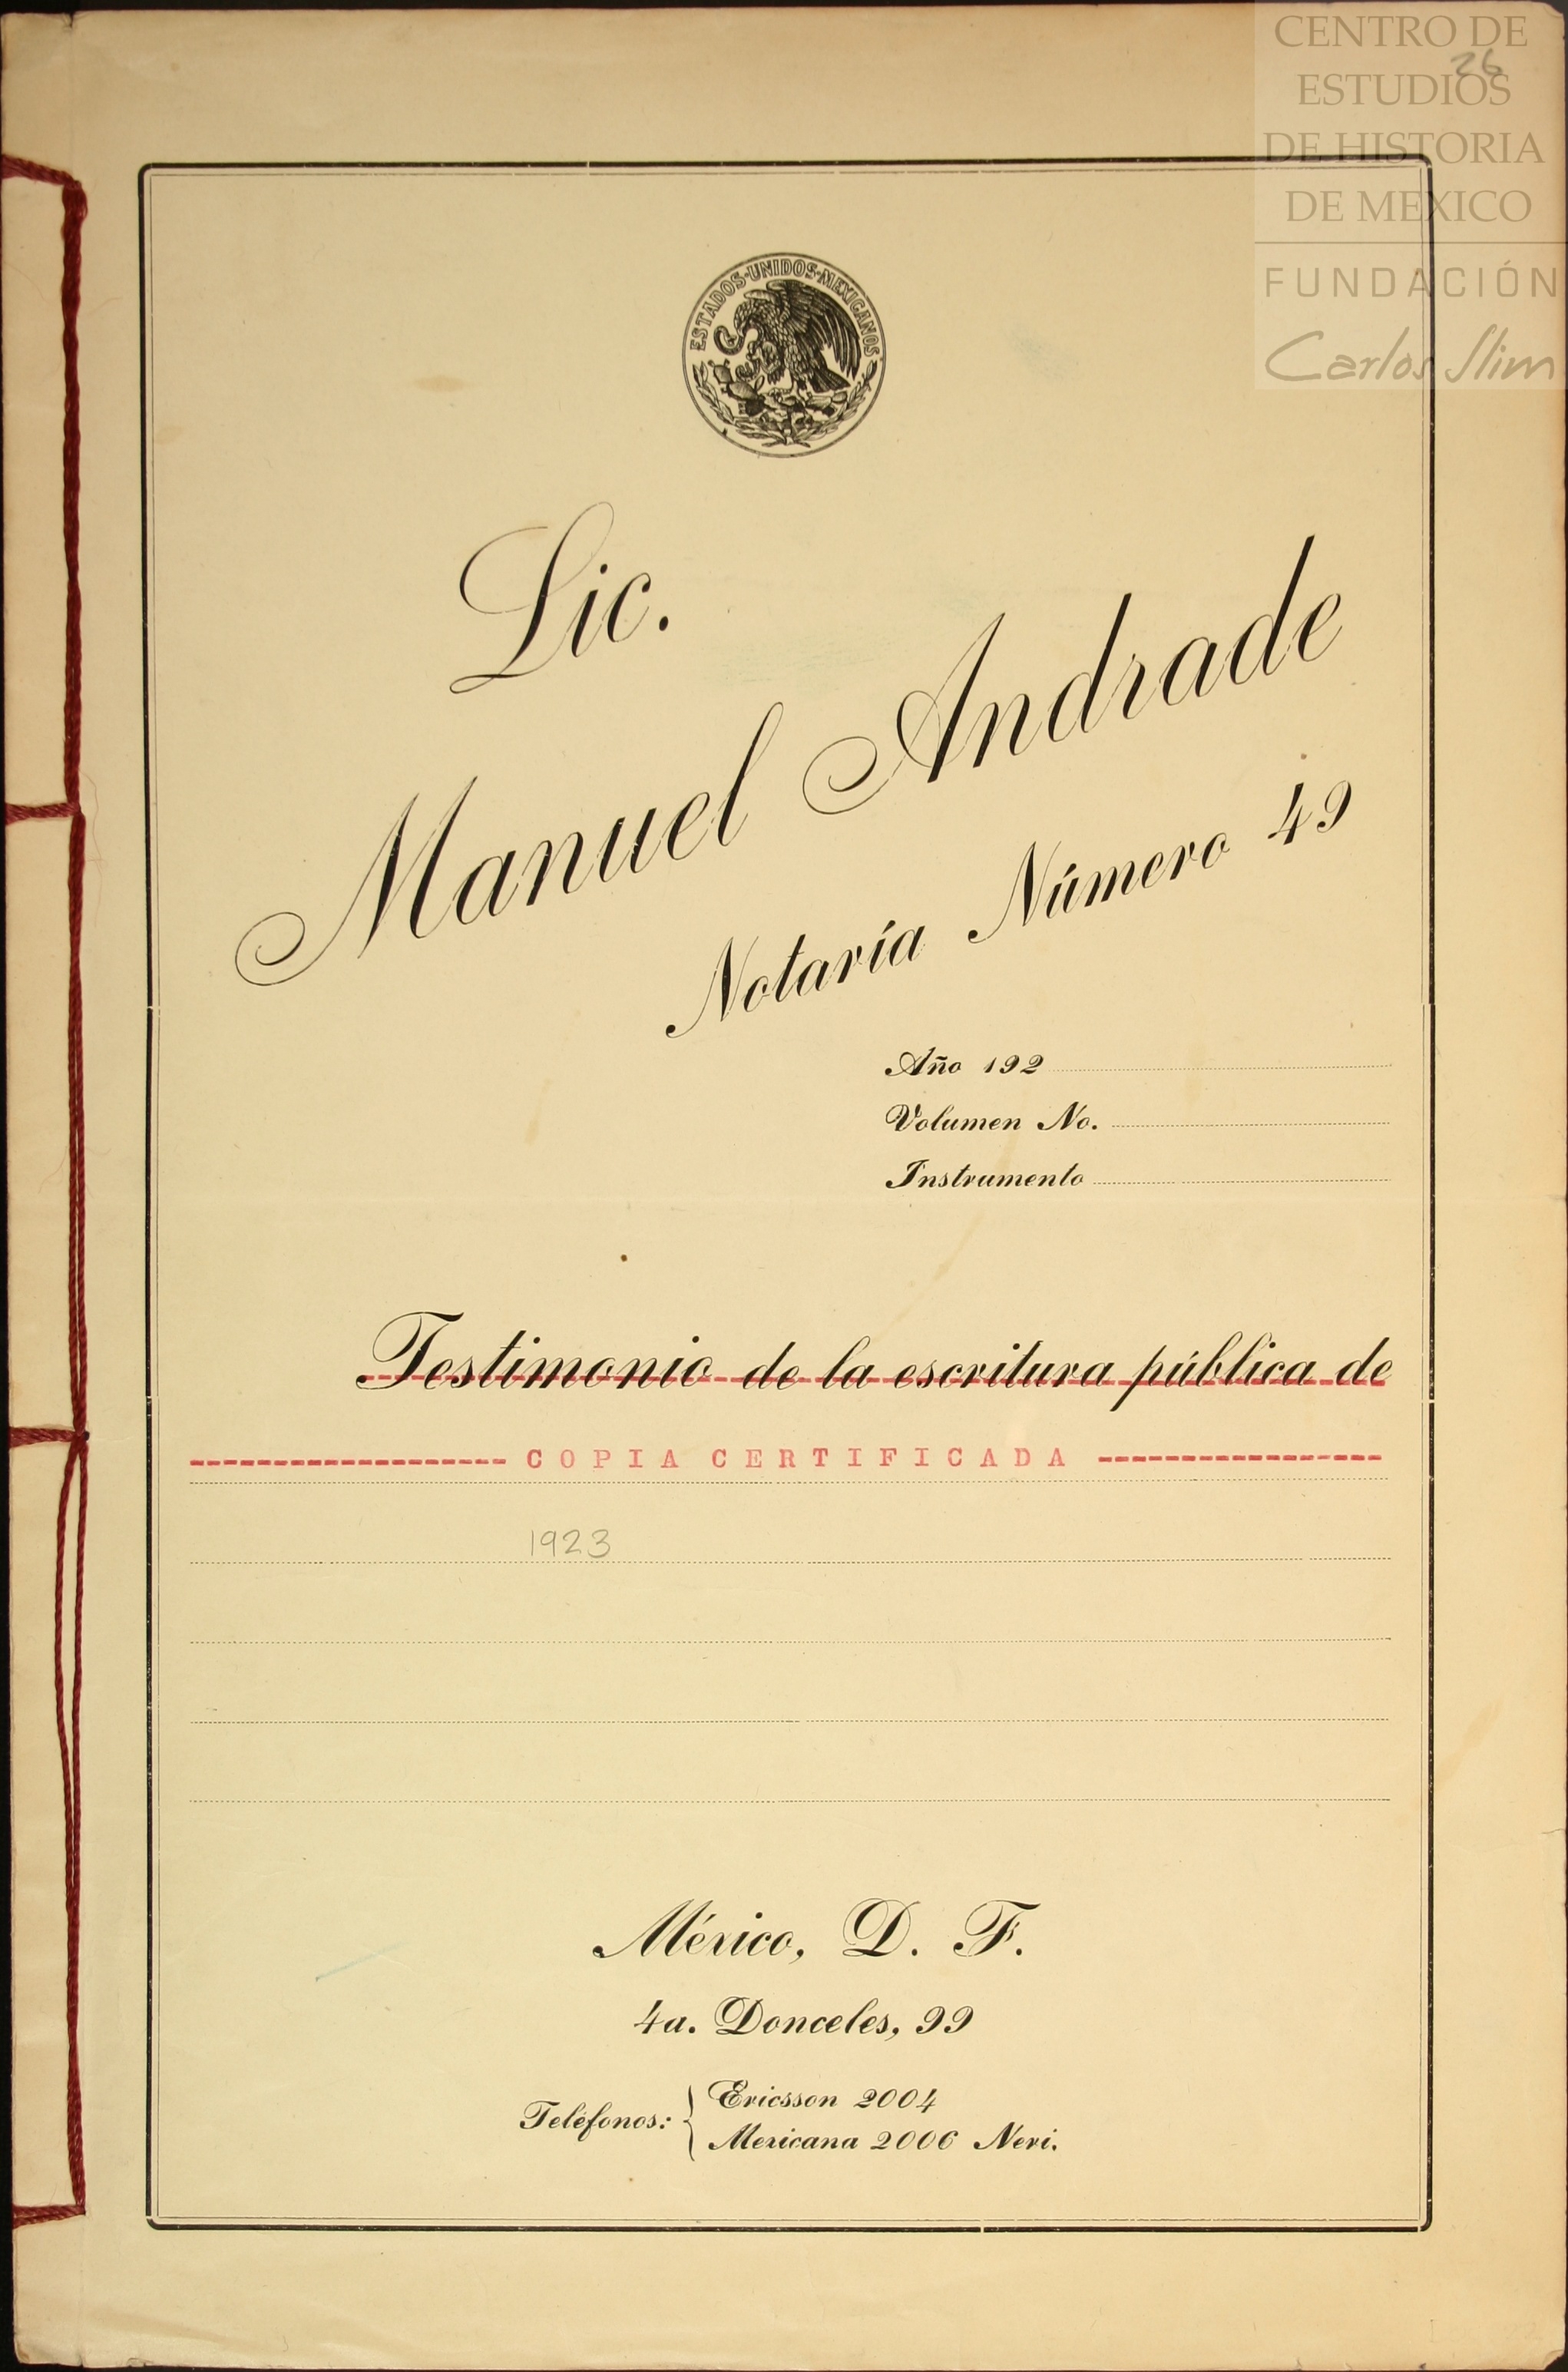 CENTRO DE
ESTUDIOS
DE HISTORIA
DE MEXICO
FUNDACIÓN
Carlos Slim
26
ESTADOS·UNIDOS·MEXICANOS
Lic.
Manuel Andrade
Notaría Número 49
Año 192
Volumen No.
Instrumento
Testimonio de la escritura pública de
------------------- COPIA CERTIFICADA -----------------
1923
México, D. F.
4a. Donceles, 99
Teléfonos: { Ericsson 2004
Mexicana 2006 Neri.